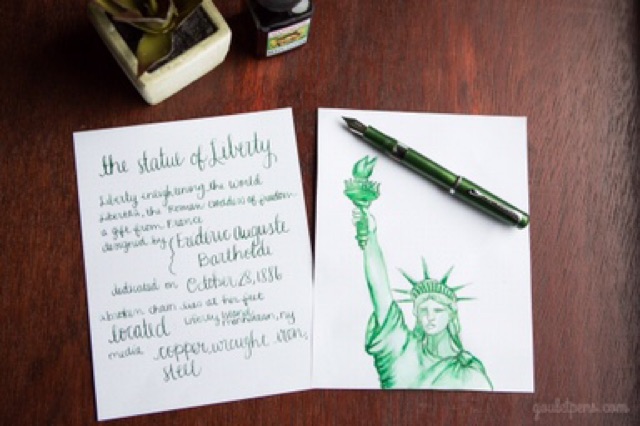 the statue of Liberty
Liberty enlightening the world
Libertas, the Roman Goddess of freedom
a gift from France
designed by Frederic Auguste
Bartholdi
dedicated on October 28, 1886
a broken chain lies at her feet
located Liberty Island
manhattan, ny
media copper, wrought iron,
steel
gouletpens.com